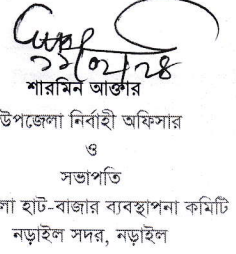 শারমিন আক্তার
উপজেলা নির্বাহী অফিসার
ও
সভাপতি
লা হাট-বাজার ব্যবস্থাপনা কমিটি
নড়াইল সদর, নড়াইল